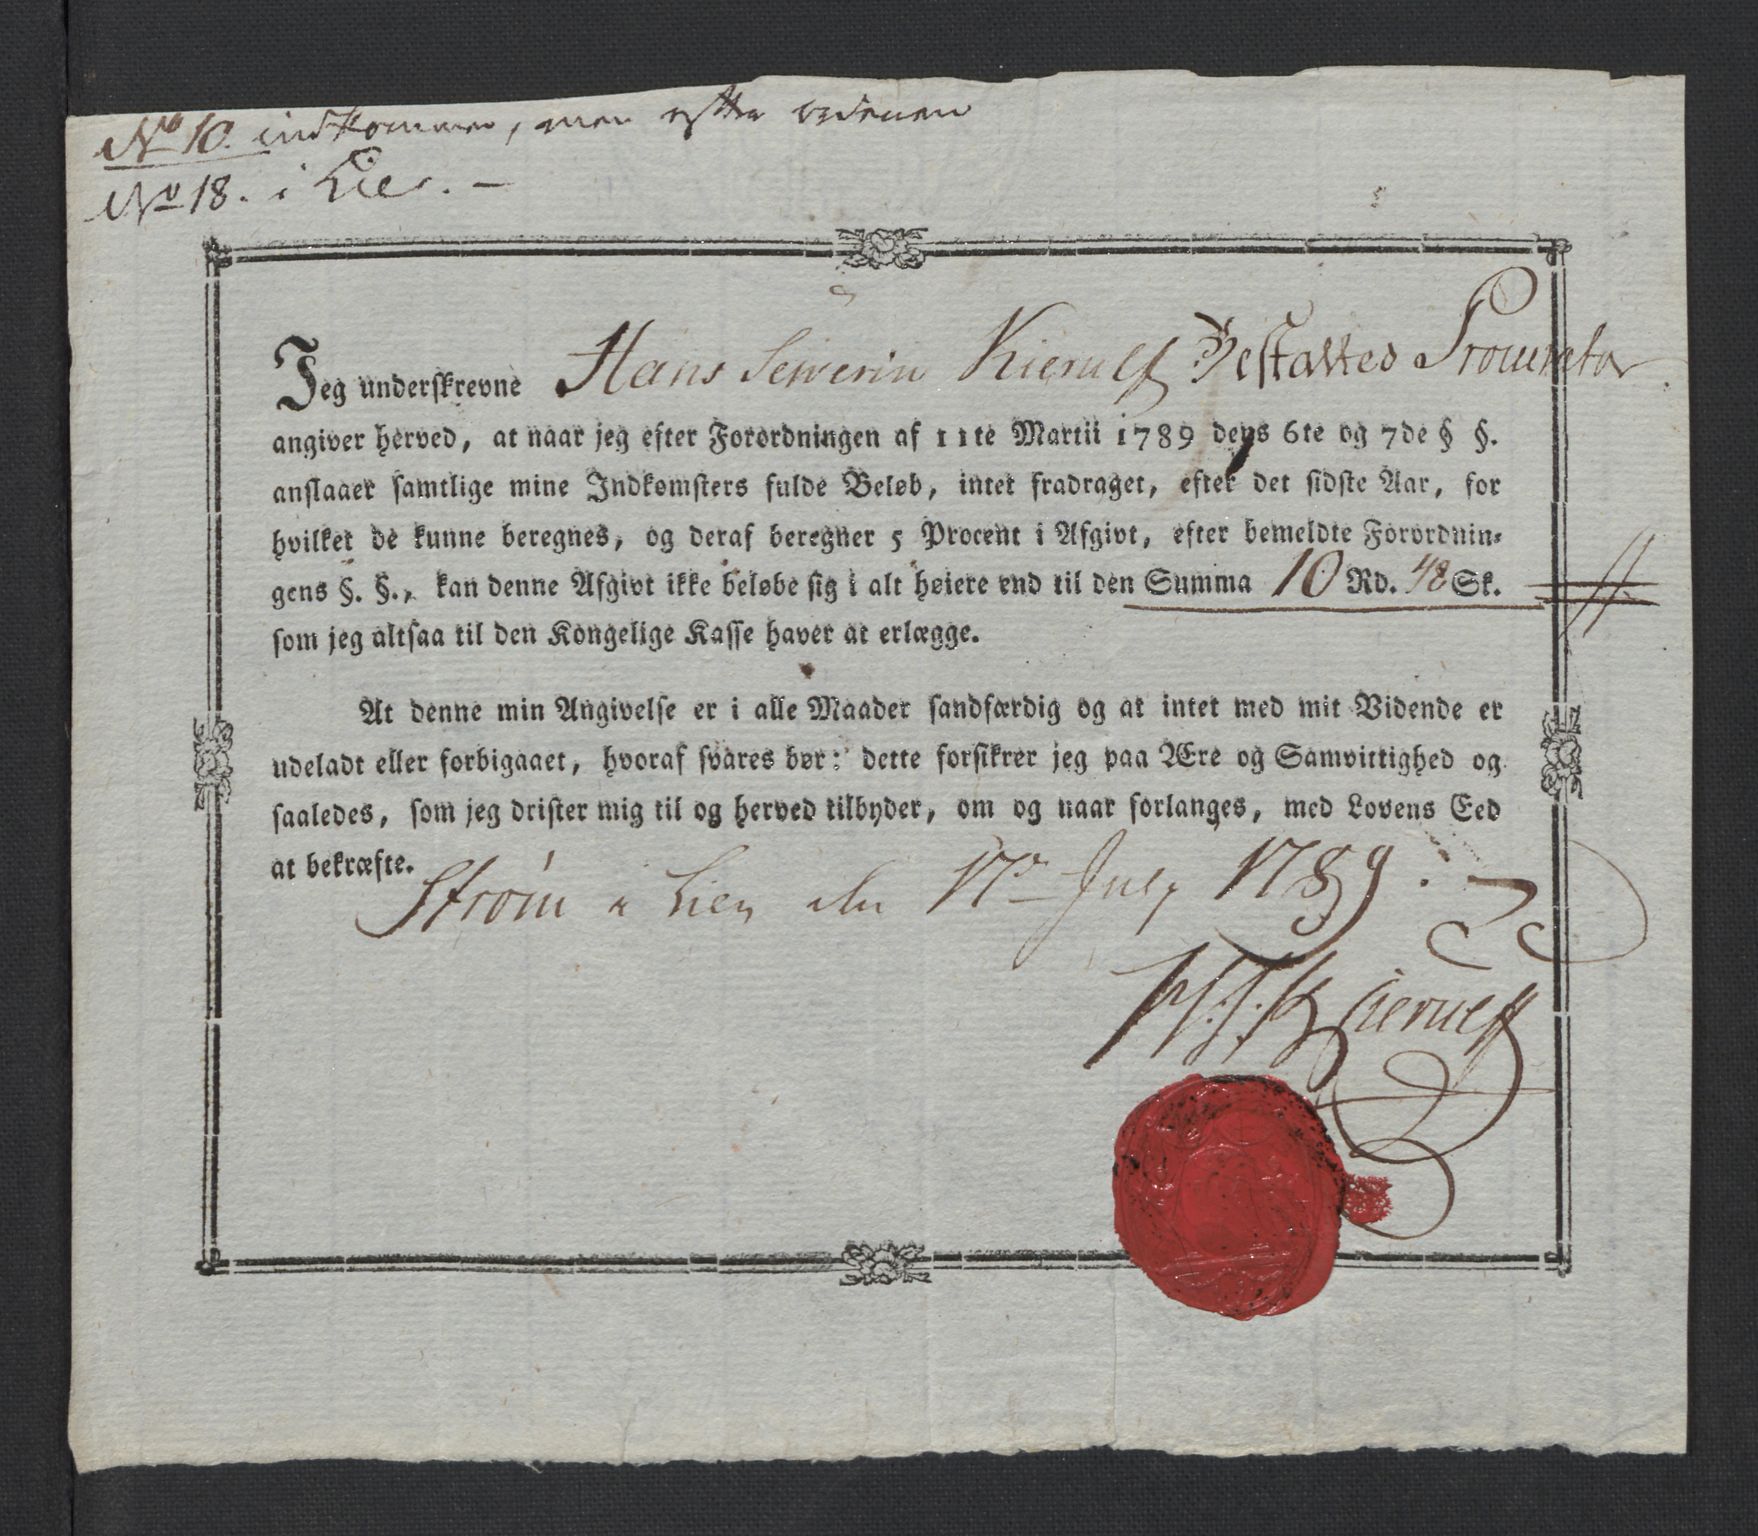 No 10. indkommer, men efter
No 18. i Lier. —
Jeg underskrevne Hans Severin Kierulf Bestalted Procurator
angiver herved, at naar jeg efter Forordningen af 11te Martii 1789 dens 6te og 7de § §.
anslaaer samtlige mine Indkomsters fulde Beløb, intet fradraget, efter det sidste Aar, for
hvilket de kunne beregnes, og deraf beregner 5 Procent i Afgivt, efter bemeldte Forordnin-
gens §. §., kan denne Afgivt ikke beløbe sig i alt høiere end til den Summa 10 Rd. 48 Sk.
som jeg altsaa til den Kongelige Kasse haver at erlægge.
At denne min Angivelse er i alle Maader sandfærdig og at intet med mit Vidende er
udeladt eller forbigaaet, hvoraf svares bør: dette forsikrer jeg paa Ære og Samvittighed og
saaledes, som jeg drister mig til og herved tilbyder, om og naar forlanges, med Lovens Eed
at bekræfte.
Strøm i Lier den 17de July 1789.
H. S. Kierulff